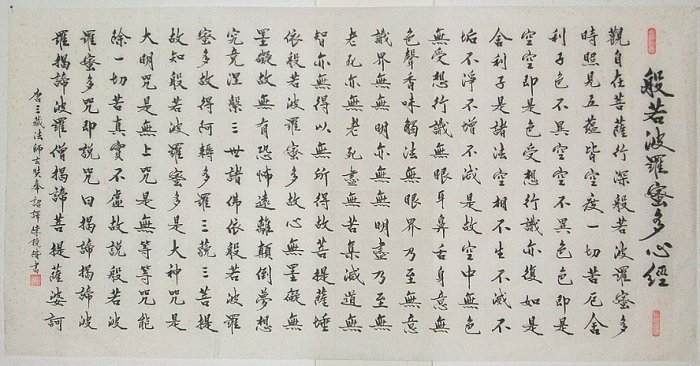 般若波羅蜜多心經
觀自在菩薩行深般若波羅蜜多
時照見五蘊皆空度一切苦厄舍
利子色不異空空不異色色即是
空空即是色受想行識亦復如是
舍利子是諸法空相不生不滅不
垢不淨不增不減是故空中無色
無受想行識無眼耳鼻舌身意無
色聲香味觸法無眼界乃至無意
識界無無明亦無無明盡乃至無
老死亦無老死盡無苦集滅道無
智亦無得以無所得故菩提薩埵
依般若波羅蜜多故心無罣礙無
罣礙故無有恐怖遠離顛倒夢想
究竟涅槃三世諸佛依般若波羅
蜜多故得阿耨多羅三藐三菩提
故知般若波羅蜜多是大神咒是
大明咒是無上咒是無等等咒能
除一切苦真實不虛故說般若波
羅蜜多咒即說咒曰揭諦揭諦波
羅揭諦波羅僧揭諦菩提薩婆訶
唐三藏法師玄奘奉詔譯 書